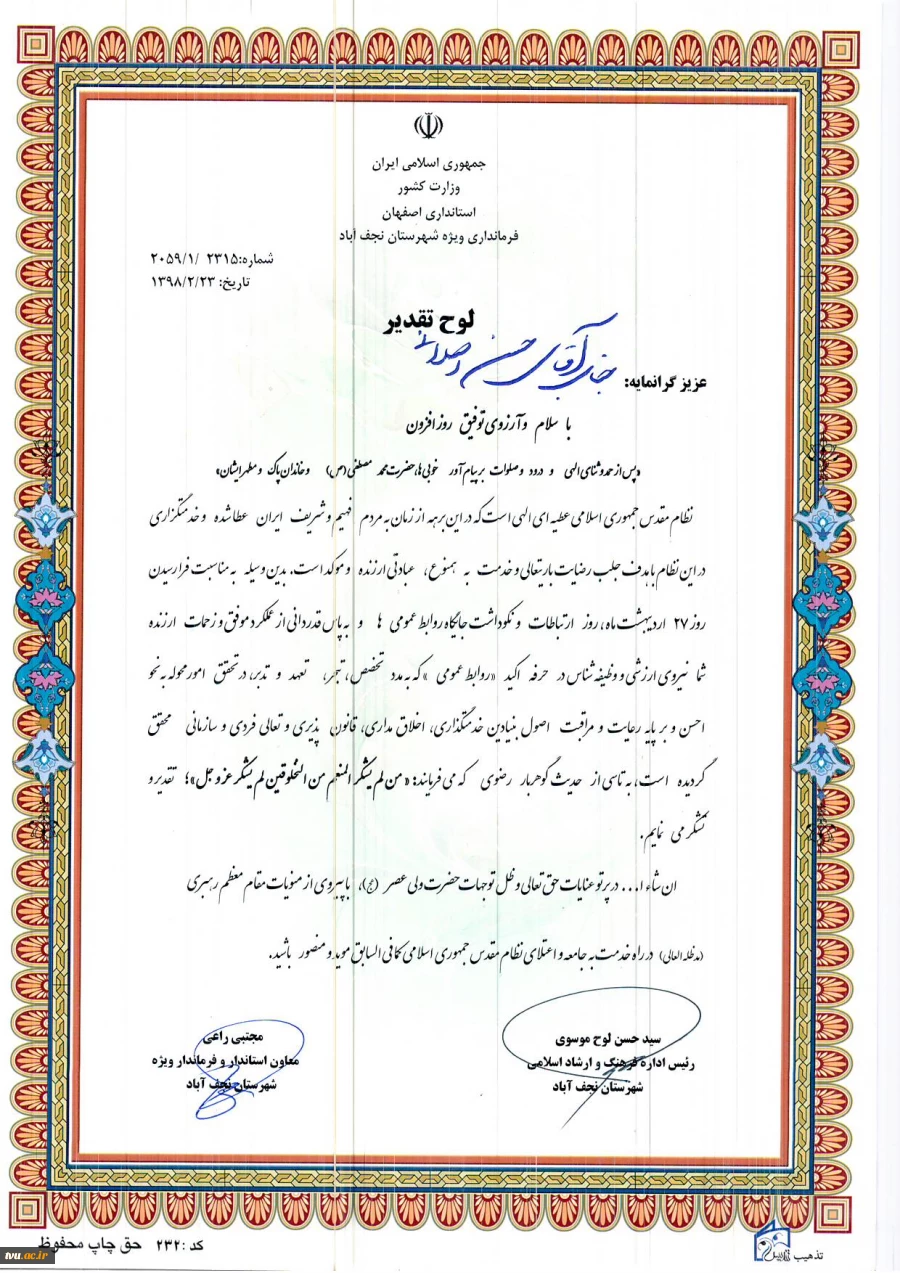 جمهوری اسلامی ایران
وزارت کشور
استانداری اصفهان
فرمانداری ویژه شهرستان نجف آباد
شماره:۲۳۱۵ /۲۰۵۹/۱
تاریخ: ۱۳۹۸/۲/۲۳
لوح تقدیر
عزیز گرانمایه: جناب آقای حسن
با سلام و آرزوی توفیق روز افزون
«پس از حمد و ثنای الهی و درود و صلوات بر پیام آور خوبی ها، حضرت محمد مصطفی (ص) و خاندان پاک و مطهر ایشان»
نظام مقدس جمهوری اسلامی عطیه ای الهی است که در این برهه از زمان به مردم فهیم و شریف ایران عطا شده و خدمتگزاری
در این نظام با هدف جلب رضایت باریتعالی و خدمت به همنوع، عبادتی ارزنده و موکد است. بدین وسیله به مناسبت فرارسیدن
روز ۲۷ اردیبهشت ماه، روز ارتباطات و نکوداشت جایگاه روابط عمومی ها و به پاس قدردانی از عملکرد موفق و زحمات ارزنده
شما نیروی ارزشی و وظیفه شناس در حرفه اکید «روابط عمومی» که به مدد تخصص، تبحر، تعهد و تدبر، در تحقق امور محوله به نحو
احسن و بر پایه رعایت و مراقبت اصول بنیادین خدمتگذاری، اخلاق مداری، قانون پذیری و تعالی فردی و سازمانی محقق
گردیده است، به تاسی از حدیث گوهربار رضوی که می فرمایند: «من لم یشکر المنعم من المخلوقین لم یشکر عزوجل»؛ تقدیر و
تشکر می نمایم.
ان شاء ا... در پرتو عنایات حق تعالی و ظل توجهات حضرت ولی عصر (عج)، با پیروی از منویات مقام معظم رهبری
(مدظله العالی) در راه خدمت به جامعه و اعتلای نظام مقدس جمهوری اسلامی کمافی السابق موید و منصور باشید.
سید حسن لوح موسوی
رئیس اداره فرهنگ و ارشاد اسلامی
شهرستان نجف آباد
مجتبی راعی
معاون استاندار و فرماندار ویژه
شهرستان نجف آباد
کد :۲۳۲ حق چاپ محفوظ
تذهیب
tvu.ac.ir